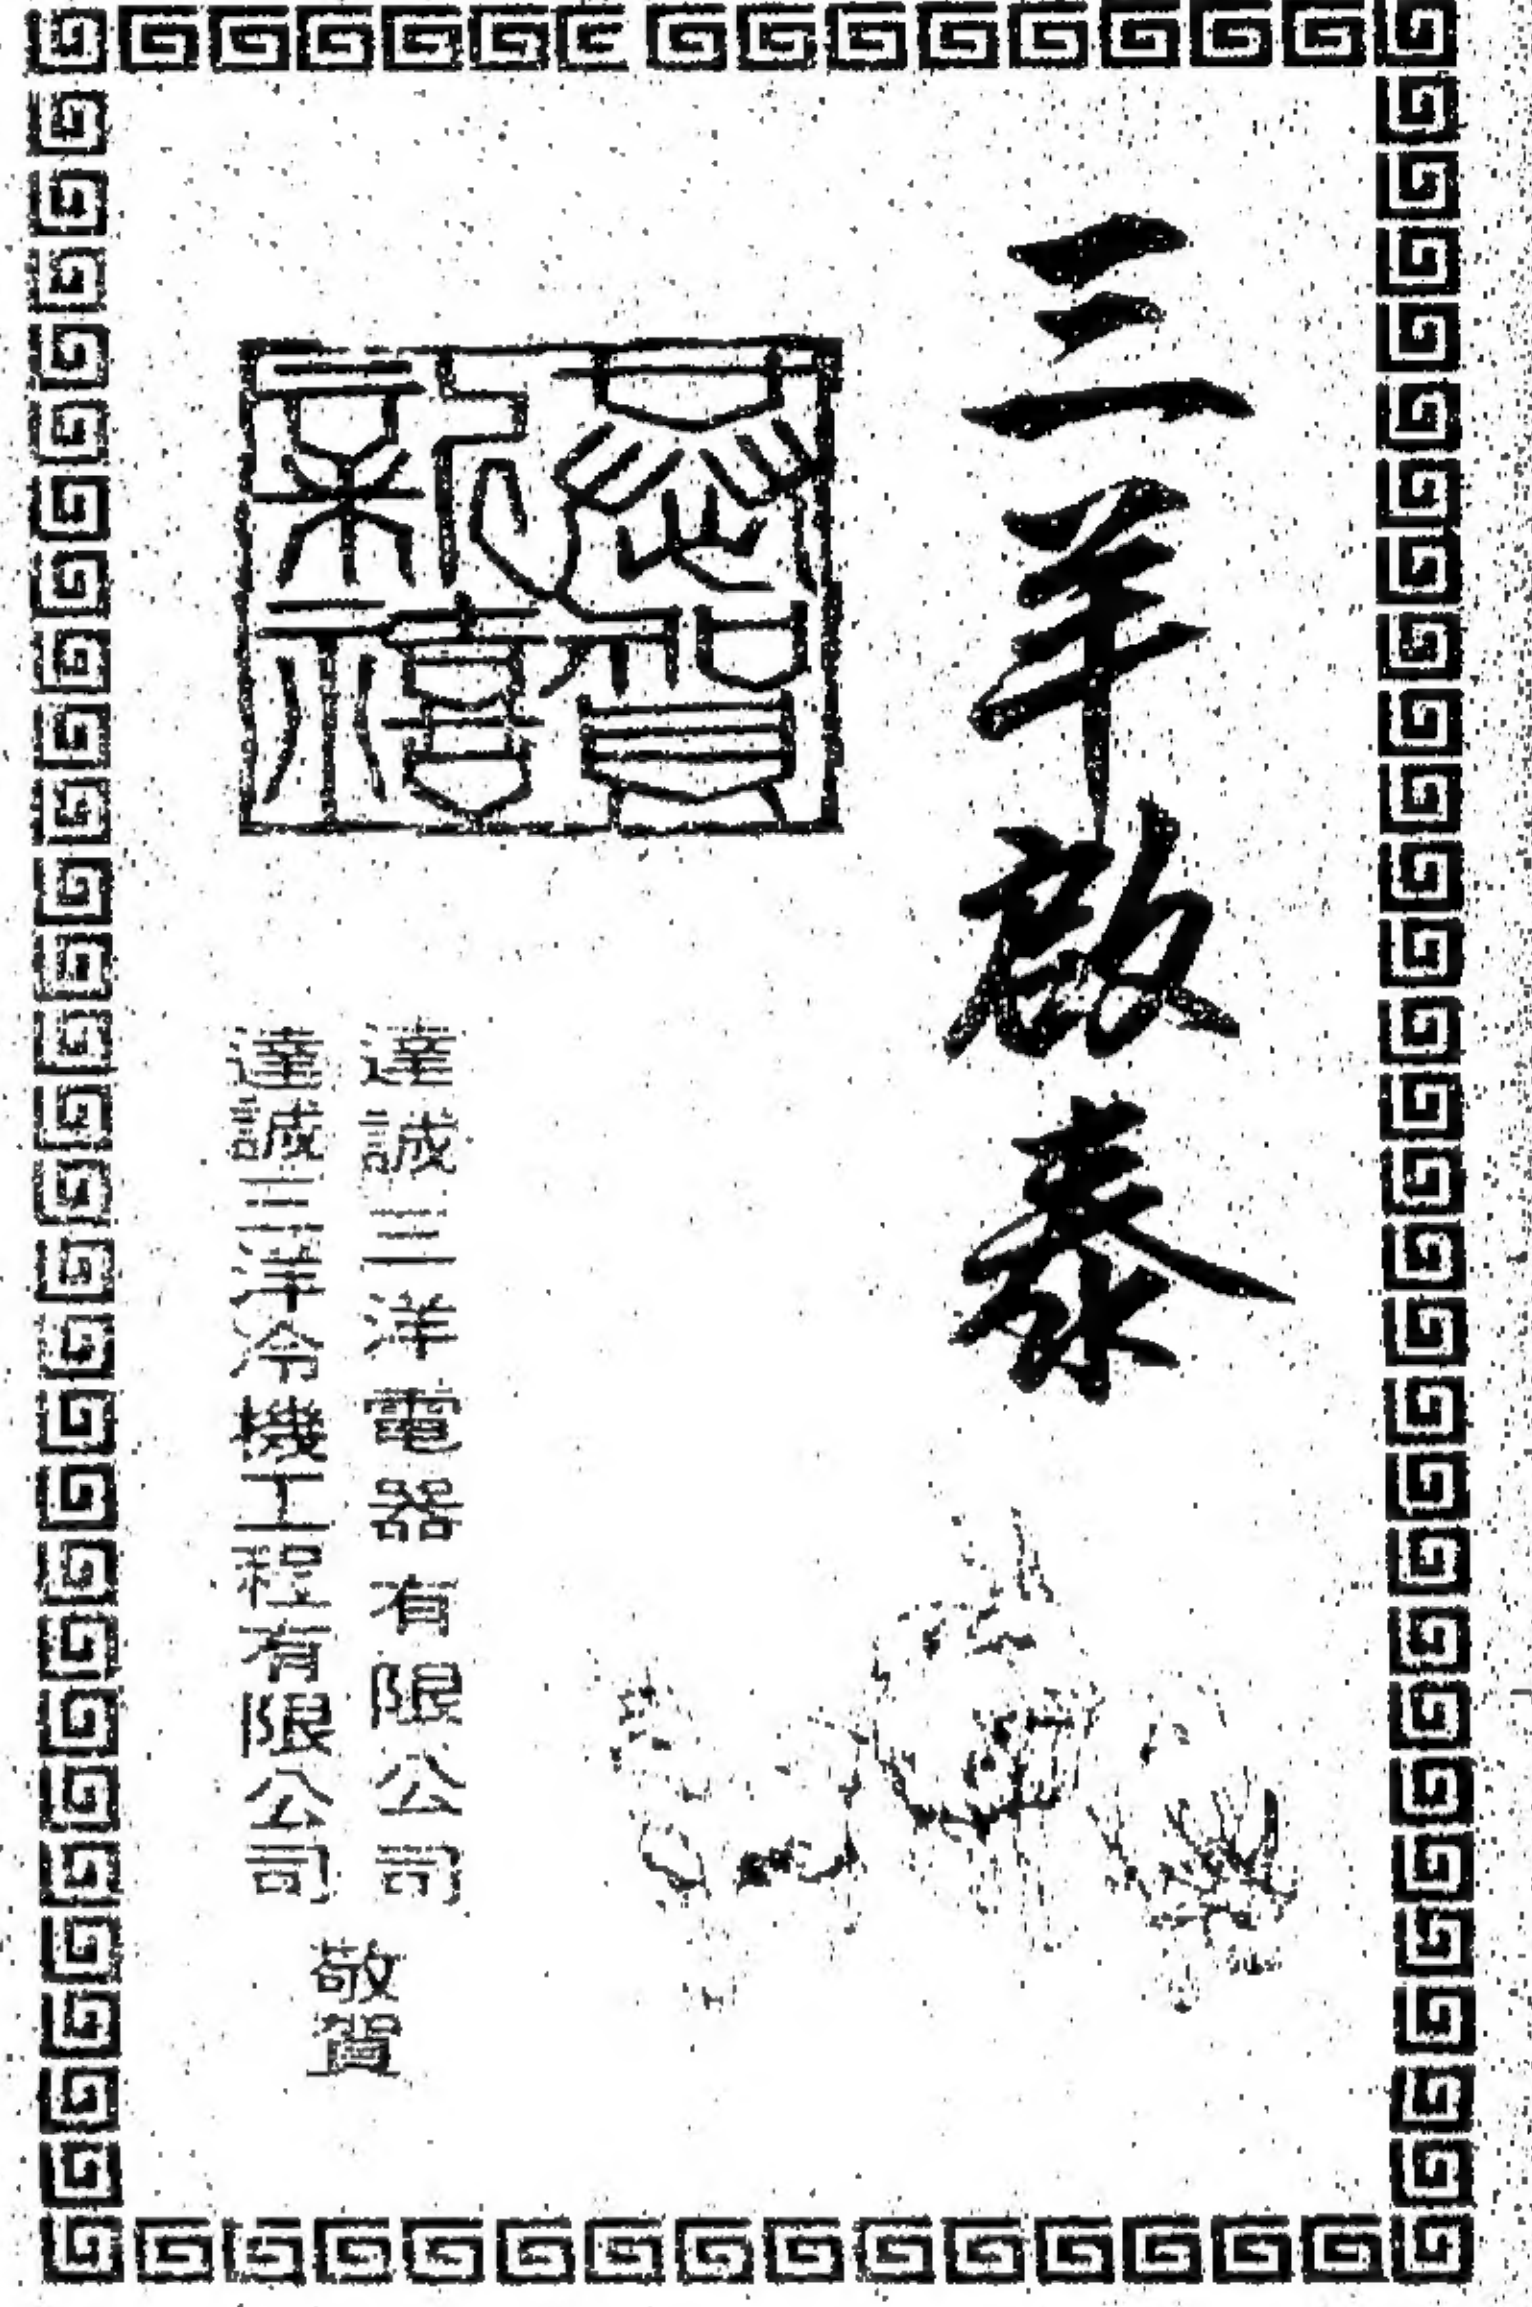 三羊啟泰
恭賀新禧
達誠三洋電器有限公司
達誠三洋冷機工程有限公司
敬賀